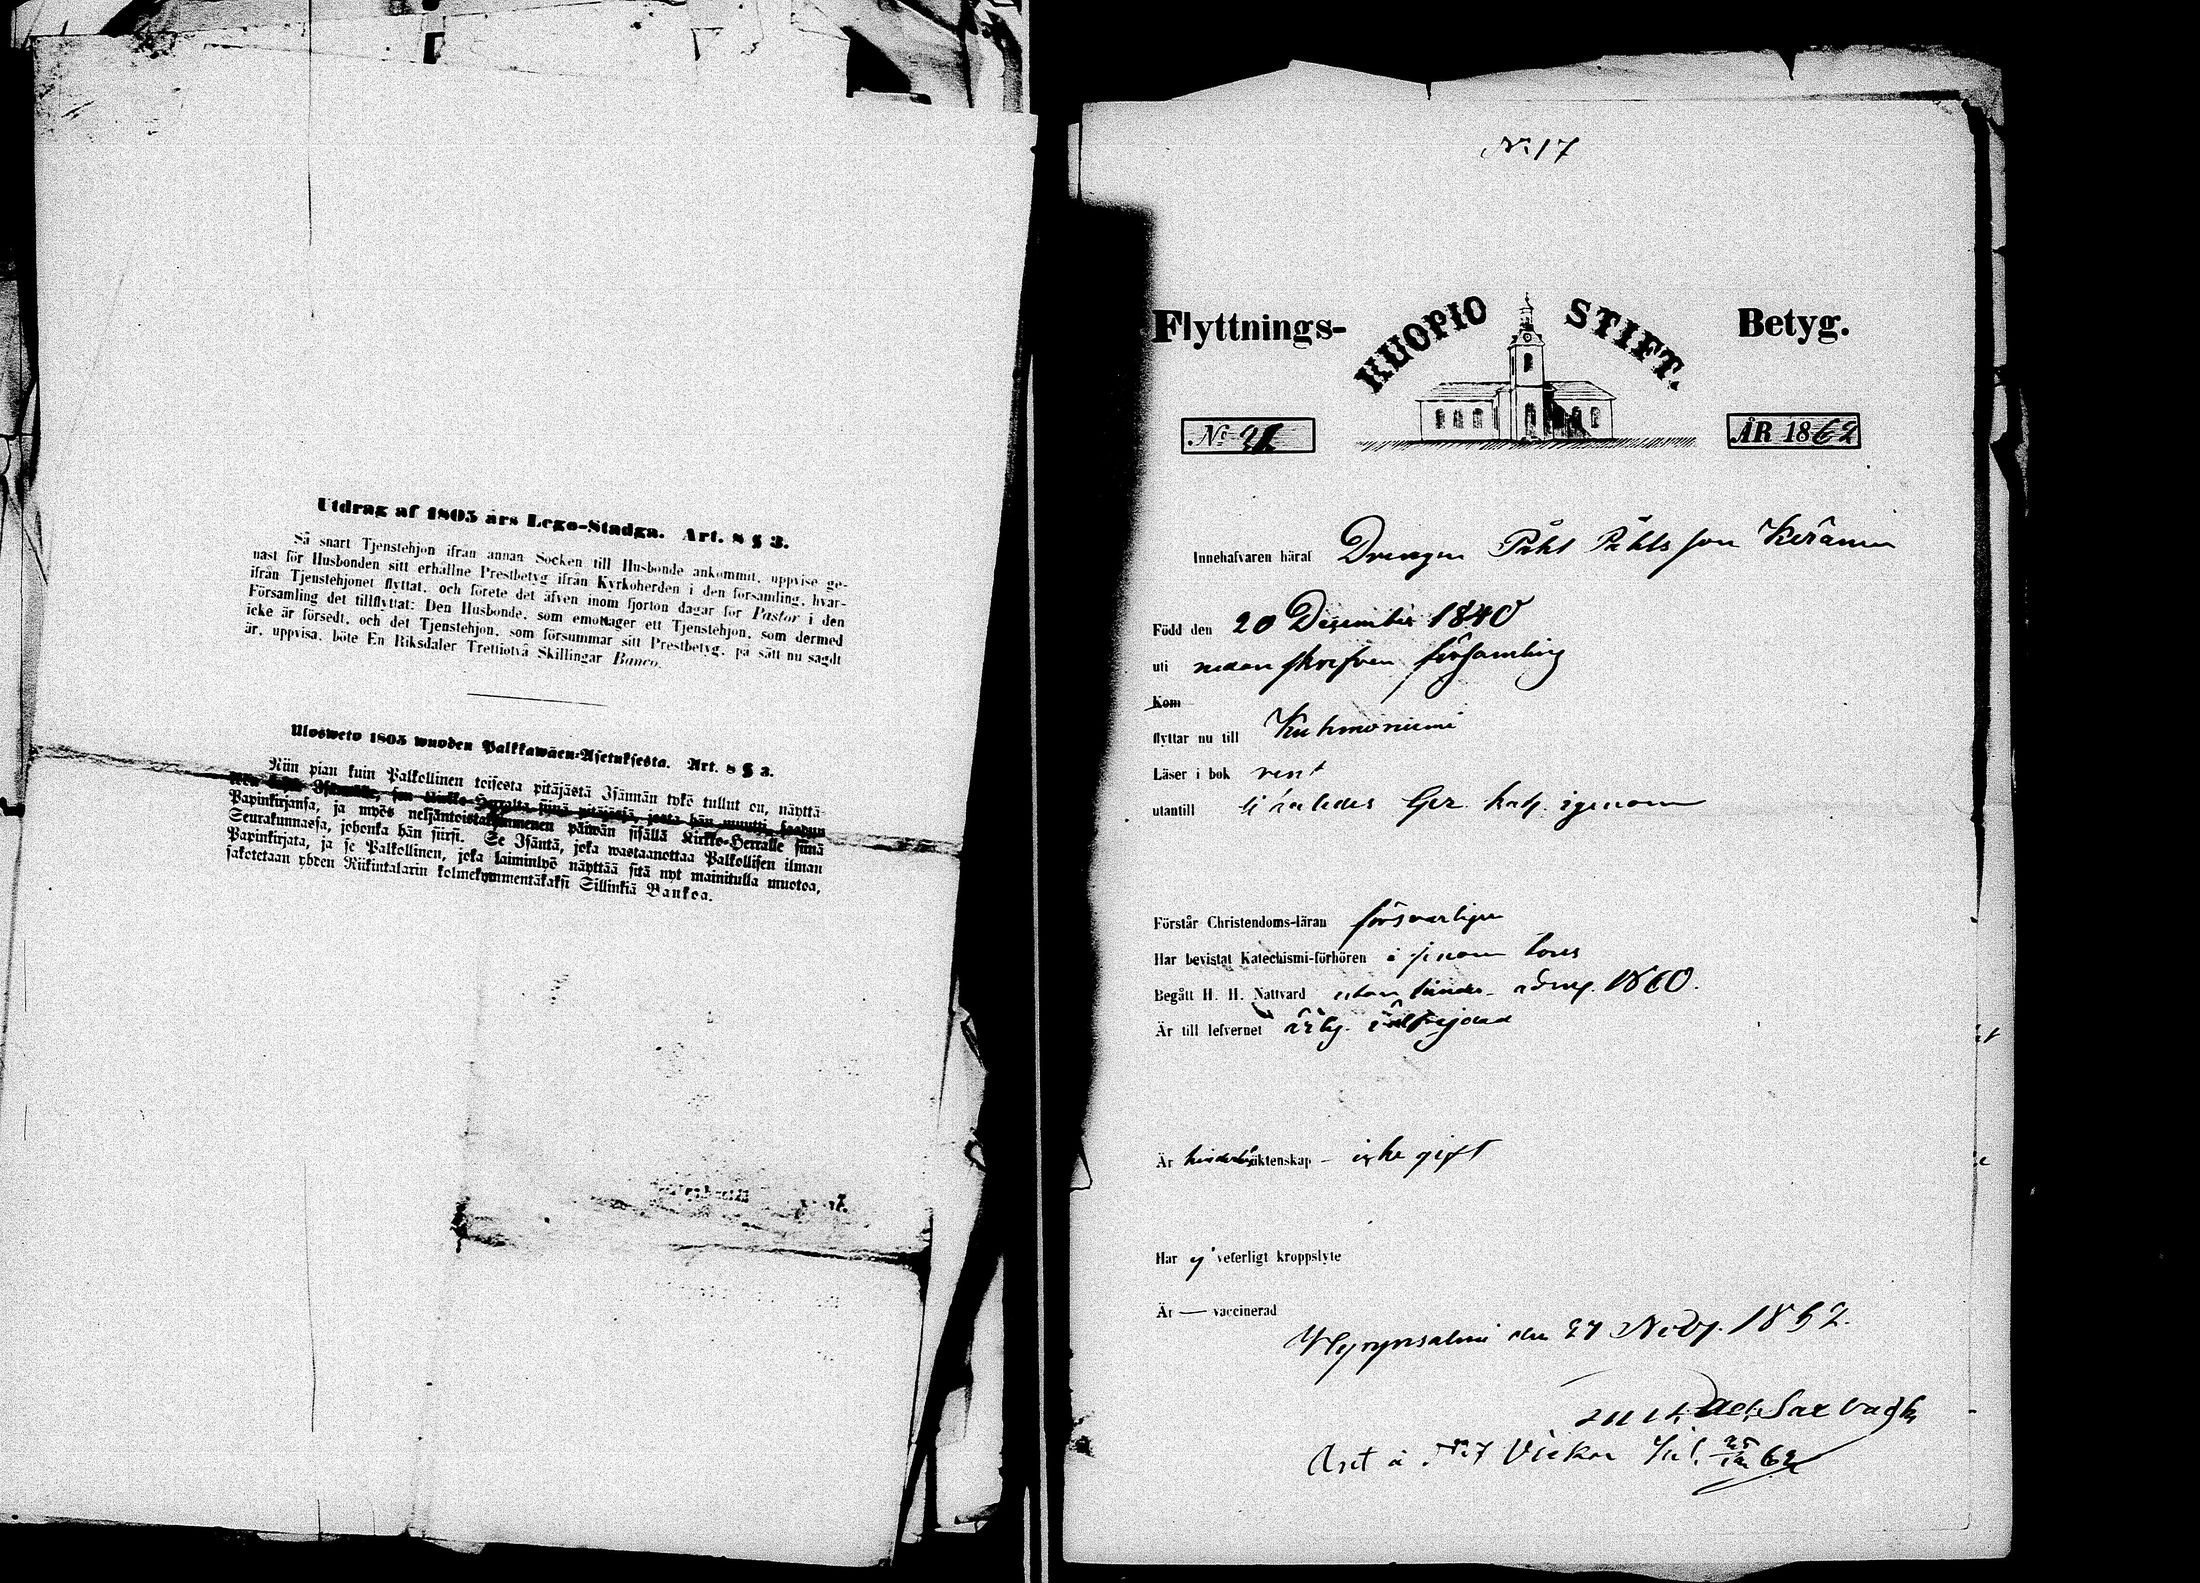 Utdrag af 1805 års Lego-Stadga. Art. 8 § 3.
Så snart Tjenstehjon ifrån annan Socken till Husbonde ankommit, uppvise ge-
nast för Husbonden sitt erhållne Prestbetyg ifrån Kyrkoherden i den församling, hvar-
ifrån Tjenstehjonet flyttat, och förete det äfven inom fjorton dagar för Pastor i den
Församling det tillflyttat: Den Husbonde, som emottager ett Tjenstehjon, som dermed
icke är försedt, och det Tjenstehjon, som försummar sitt Prestbetyg, på sätt nu sagdt
är, uppvisa, böte En Riksdaler Trettiotvå Skillingar Banco.
Ulosweto 1805 wuoden Palkkawäen-Asetuksesta. Art. 8 § 3.
Niin pian kuin Palkollinen toisesta pitäjästä Isännän tykö tullut on, näyttä-
Isännälle, sen Kirkko-Herralta siinä pitäjässä, josta hän muutti, saadun
Papinkirjansa, ja myös neljäntoistakymmenen päiwän sisällä Kirkko-Herralle siinä
Seurakunnassa, johonka hän siirsi. Se Isäntä, joka wastaanottaa Palkollisen ilman
Papinkirjata, ja se Palkollinen, joka laiminlyö näyttää sitä nyt mainitulla muotoa,
sakotetaan yhden Riikintalarin kolmekymmentäkaksi Sillinkiä Bankoa.
No 17
Flyttnings- KUOPIO STIFT. Betyg.
No ÅR 1862
Innehafvaren häraf Drengen Påhl Påhlsson Keränen
Född den 20 December 1840
uti nedanskrifven församling
Kom
flyttar nu till Kuhmoniemi
Läser i bok rent
utantill Katk. igenom
Förstår Christendoms-läran försvarligen
Har bevistat Katechismi-förhören
Begått H. H. Nattvard utan 1860.
Är till lefvernet ärlig
Är äktenskap – icke gift
Har ej veterligt kroppslyte
Är — vaccinerad
Hyrynsalmi den 27 Novbr. 1862.